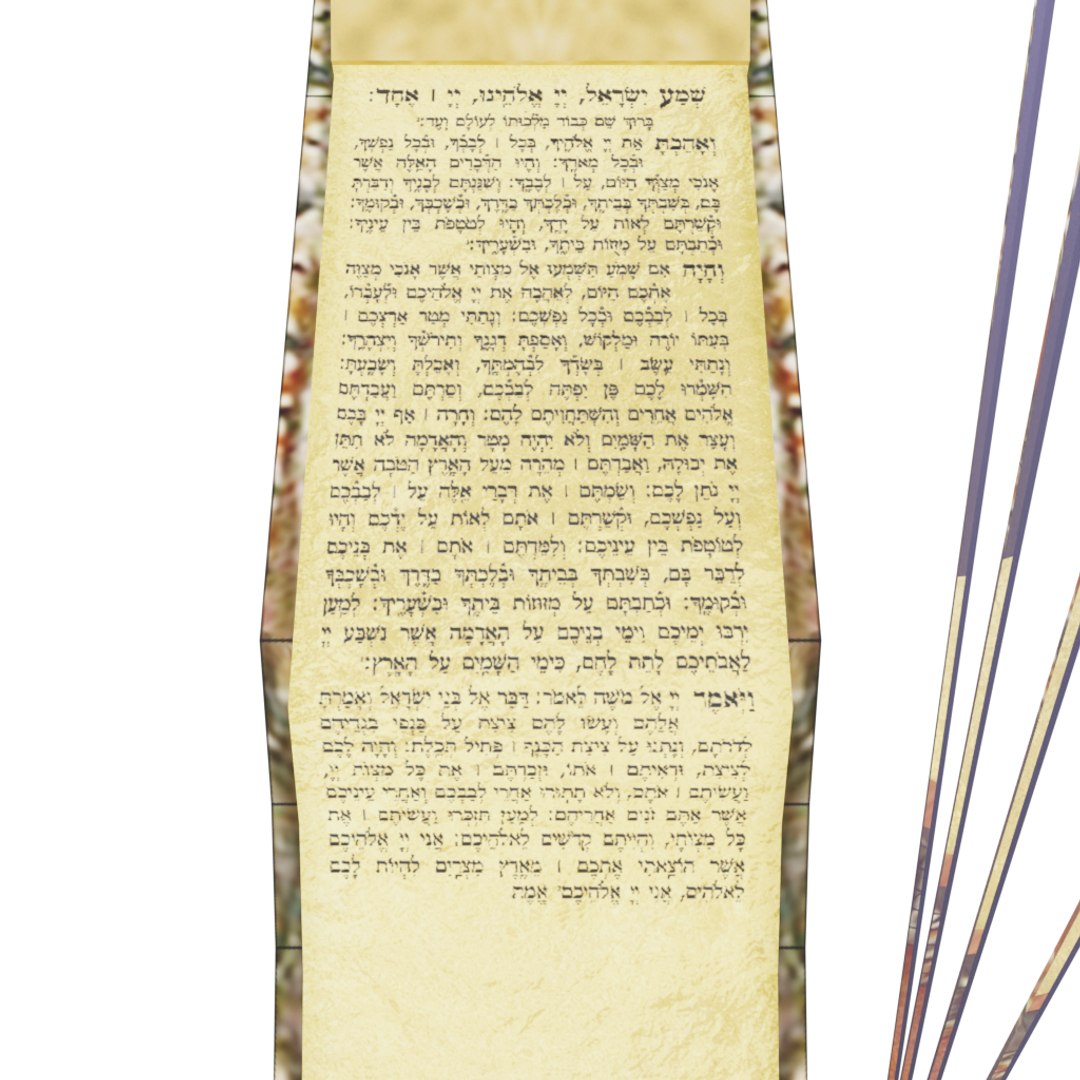 שְׁמַע יִשְׂרָאֵל, יְיָ אֱלֹהֵינוּ, יְיָ ׀ אֶחָד:
בָּרוּךְ שֵׁם כְּבוֹד מַלְכוּתוֹ לְעוֹלָם וָעֶד:
וְאָהַבְתָּ אֵת יְיָ אֱלֹהֶיךָ, בְּכָל ׀ לְבָבְךָ, וּבְכָל נַפְשְׁךָ,
וּבְכָל מְאֹדֶךָ: וְהָיוּ הַדְּבָרִים הָאֵלֶּה אֲשֶׁר
אָנֹכִי מְצַוְּךָ הַיּוֹם, עַל ׀ לְבָבֶךָ: וְשִׁנַּנְתָּם לְבָנֶיךָ וְדִבַּרְתָּ
בָּם, בְּשִׁבְתְּךָ בְּבֵיתֶךָ, וּבְלֶכְתְּךָ בַדֶּרֶךְ, וּבְשָׁכְבְּךָ, וּבְקוּמֶךָ:
וּקְשַׁרְתָּם לְאוֹת עַל יָדֶךָ, וְהָיוּ לְטֹטָפֹת בֵּין עֵינֶיךָ:
וּכְתַבְתָּם עַל מְזֻזוֹת בֵּיתֶךָ, וּבִשְׁעָרֶיךָ:
וְהָיָה אִם שָׁמֹעַ תִּשְׁמְעוּ אֶל מִצְוֹתַי אֲשֶׁר אָנֹכִי מְצַוֶּה
אֶתְכֶם הַיּוֹם, לְאַהֲבָה אֶת יְיָ אֱלֹהֵיכֶם וּלְעָבְדוֹ,
בְּכָל ׀ לְבַבְכֶם וּבְכָל נַפְשְׁכֶם: וְנָתַתִּי מְטַר אַרְצְכֶם ׀
בְּעִתּוֹ יוֹרֶה וּמַלְקוֹשׁ, וְאָסַפְתָּ דְגָנֶךָ וְתִירֹשְׁךָ וְיִצְהָרֶךָ:
וְנָתַתִּי עֵשֶׂב ׀ בְּשָׂדְךָ לִבְהֶמְתֶּךָ, וְאָכַלְתָּ וְשָׂבָעְתָּ:
הִשָּׁמְרוּ לָכֶם פֶּן יִפְתֶּה לְבַבְכֶם, וְסַרְתֶּם וַעֲבַדְתֶּם
אֱלֹהִים אֲחֵרִים וְהִשְׁתַּחֲוִיתֶם לָהֶם: וְחָרָה ׀ אַף יְיָ בָּכֶם
וְעָצַר אֶת הַשָּׁמַיִם וְלֹא יִהְיֶה מָטָר וְהָאֲדָמָה לֹא תִתֵּן
אֶת יְבוּלָהּ, וַאֲבַדְתֶּם ׀ מְהֵרָה מֵעַל הָאָרֶץ הַטֹּבָה אֲשֶׁר
יְיָ נֹתֵן לָכֶם: וְשַׂמְתֶּם ׀ אֶת דְּבָרַי אֵלֶּה עַל ׀ לְבַבְכֶם
וְעַל נַפְשְׁכֶם, וּקְשַׁרְתֶּם ׀ אֹתָם לְאוֹת עַל יֶדְכֶם וְהָיוּ
לְטוֹטָפֹת בֵּין עֵינֵיכֶם: וְלִמַּדְתֶּם ׀ אֹתָם ׀ אֶת בְּנֵיכֶם
לְדַבֵּר בָּם, בְּשִׁבְתְּךָ בְּבֵיתֶךָ וּבְלֶכְתְּךָ בַדֶּרֶךְ וּבְשָׁכְבְּךָ
וּבְקוּמֶךָ: וּכְתַבְתָּם עַל מְזוּזוֹת בֵּיתֶךָ וּבִשְׁעָרֶיךָ: לְמַעַן
יִרְבּוּ יְמֵיכֶם וִימֵי בְנֵיכֶם עַל הָאֲדָמָה אֲשֶׁר נִשְׁבַּע יְיָ
לַאֲבֹתֵיכֶם לָתֵת לָהֶם, כִּימֵי הַשָּׁמַיִם עַל הָאָרֶץ:
וַיֹּאמֶר יְיָ אֶל מֹשֶׁה לֵּאמֹר: דַּבֵּר אֶל בְּנֵי יִשְׂרָאֵל וְאָמַרְתָּ
אֲלֵהֶם וְעָשׂוּ לָהֶם צִיצִת עַל כַּנְפֵי בִגְדֵיהֶם
לְדֹרֹתָם, וְנָתְנוּ עַל צִיצִת הַכָּנָף ׀ פְּתִיל תְּכֵלֶת: וְהָיָה לָכֶם
לְצִיצִת, וּרְאִיתֶם ׀ אֹתוֹ, וּזְכַרְתֶּם ׀ אֶת כָּל מִצְוֹת יְיָ,
וַעֲשִׂיתֶם ׀ אֹתָם, וְלֹא תָתוּרוּ אַחֲרֵי לְבַבְכֶם וְאַחֲרֵי עֵינֵיכֶם
אֲשֶׁר אַתֶּם זֹנִים אַחֲרֵיהֶם: לְמַעַן תִּזְכְּרוּ וַעֲשִׂיתֶם ׀ אֶת
כָּל מִצְוֹתָי, וִהְיִיתֶם קְדֹשִׁים לֵאלֹהֵיכֶם: אֲנִי יְיָ אֱלֹהֵיכֶם
אֲשֶׁר הוֹצֵאתִי אֶתְכֶם ׀ מֵאֶרֶץ מִצְרַיִם לִהְיוֹת לָכֶם
לֵאלֹהִים, אֲנִי יְיָ אֱלֹהֵיכֶם: אֱמֶת